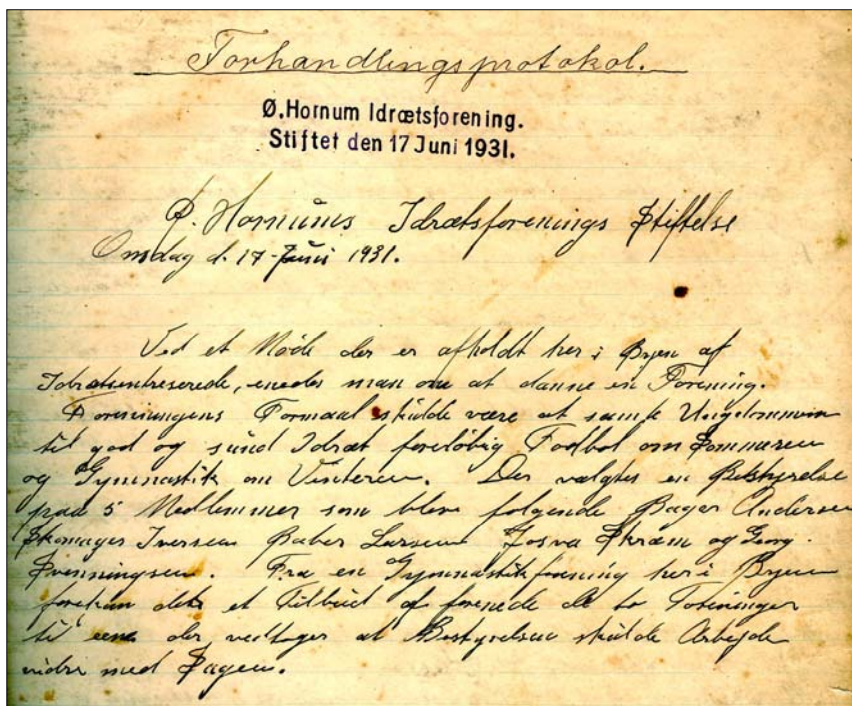 Forhandlingsprotokol.
Ø.Hornum Idrætsforening.
Stiftet den 17 Juni 1931.
Ø. Hornums Idrætsforenings Stiftelse
Onsdag d. 17-Juni 1931.
Ved et Møde der er afholdt her i Byen af
Idrætsentreserede, enedes man om at danne en Forening.
Foreningens Formaal skulde være at samle Ungdommen
til god og sund Idræt foreløbig Fodbol om Sommeren
og Gymnastik om Vinteren. Der valgtes en Bestyrelse
paa 5 Medlemmer som blev følgende Bager Andersen
Skomager Iversen Larsen Josva Skræm og Georg
Svenningsen. Fra en Gymnastikforening her i Byen
et Tilbud af forenede de to Foreninger
til der vedtoges at Bestyrelsen skulde Arbejde
vidre med Sagen.